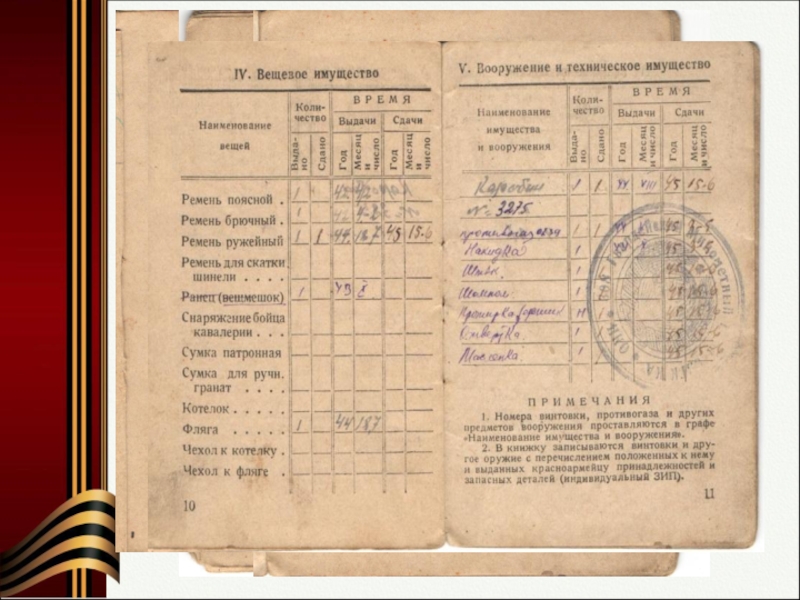 IV. Вещевое имущество
Наименование вещей
Коли-
чество
ВРЕМЯ
Выдачи
Сдачи
Выда-
но
Сдано
Год
Месяц
и число
Год
Месяц
и число
Ремень поясной . 1
Ремень брючный . 1
Ремень ружейный 1 1 44 18.7 45 15.6
Ремень для скатки
шинели . . . .
Ранец (вещмешок) 1 43 X
Снаряжение бойца
кавалерии . . . .
Сумка патронная
Сумка для ручн.
гранат . . . . .
Котелок . . . . .
Фляга . . . . . 1 44 18.7
Чехол к котелку .
Чехол к фляге .
10
V. Вооружение и техническое имущество
Наименование
имущества
и вооружения
Коли-
чество
ВРЕМЯ
Выдачи
Сдачи
Выда-
но
Сдано
Год
Месяц
и число
Год
Месяц
и число
Карабин 1 1 VIII 45 15.6
№ 3275
противогаз 1 1 45
Накидка 1 45
Штык 1 45
Шомпол 1 45
1 45
Отвертка 1 45 15-6
Масленка 1 45 15-6
ПРИМЕЧАНИЯ
1. Номера винтовки, противогаза и других
предметов вооружения проставляются в графе
«Наименование имущества и вооружения».
2. В книжку записываются винтовки и дру-
гое оружие с перечислением положенных к нему
и выданных красноармейцу принадлежностей и
запасных деталей (индивидуальный ЗИП).
11